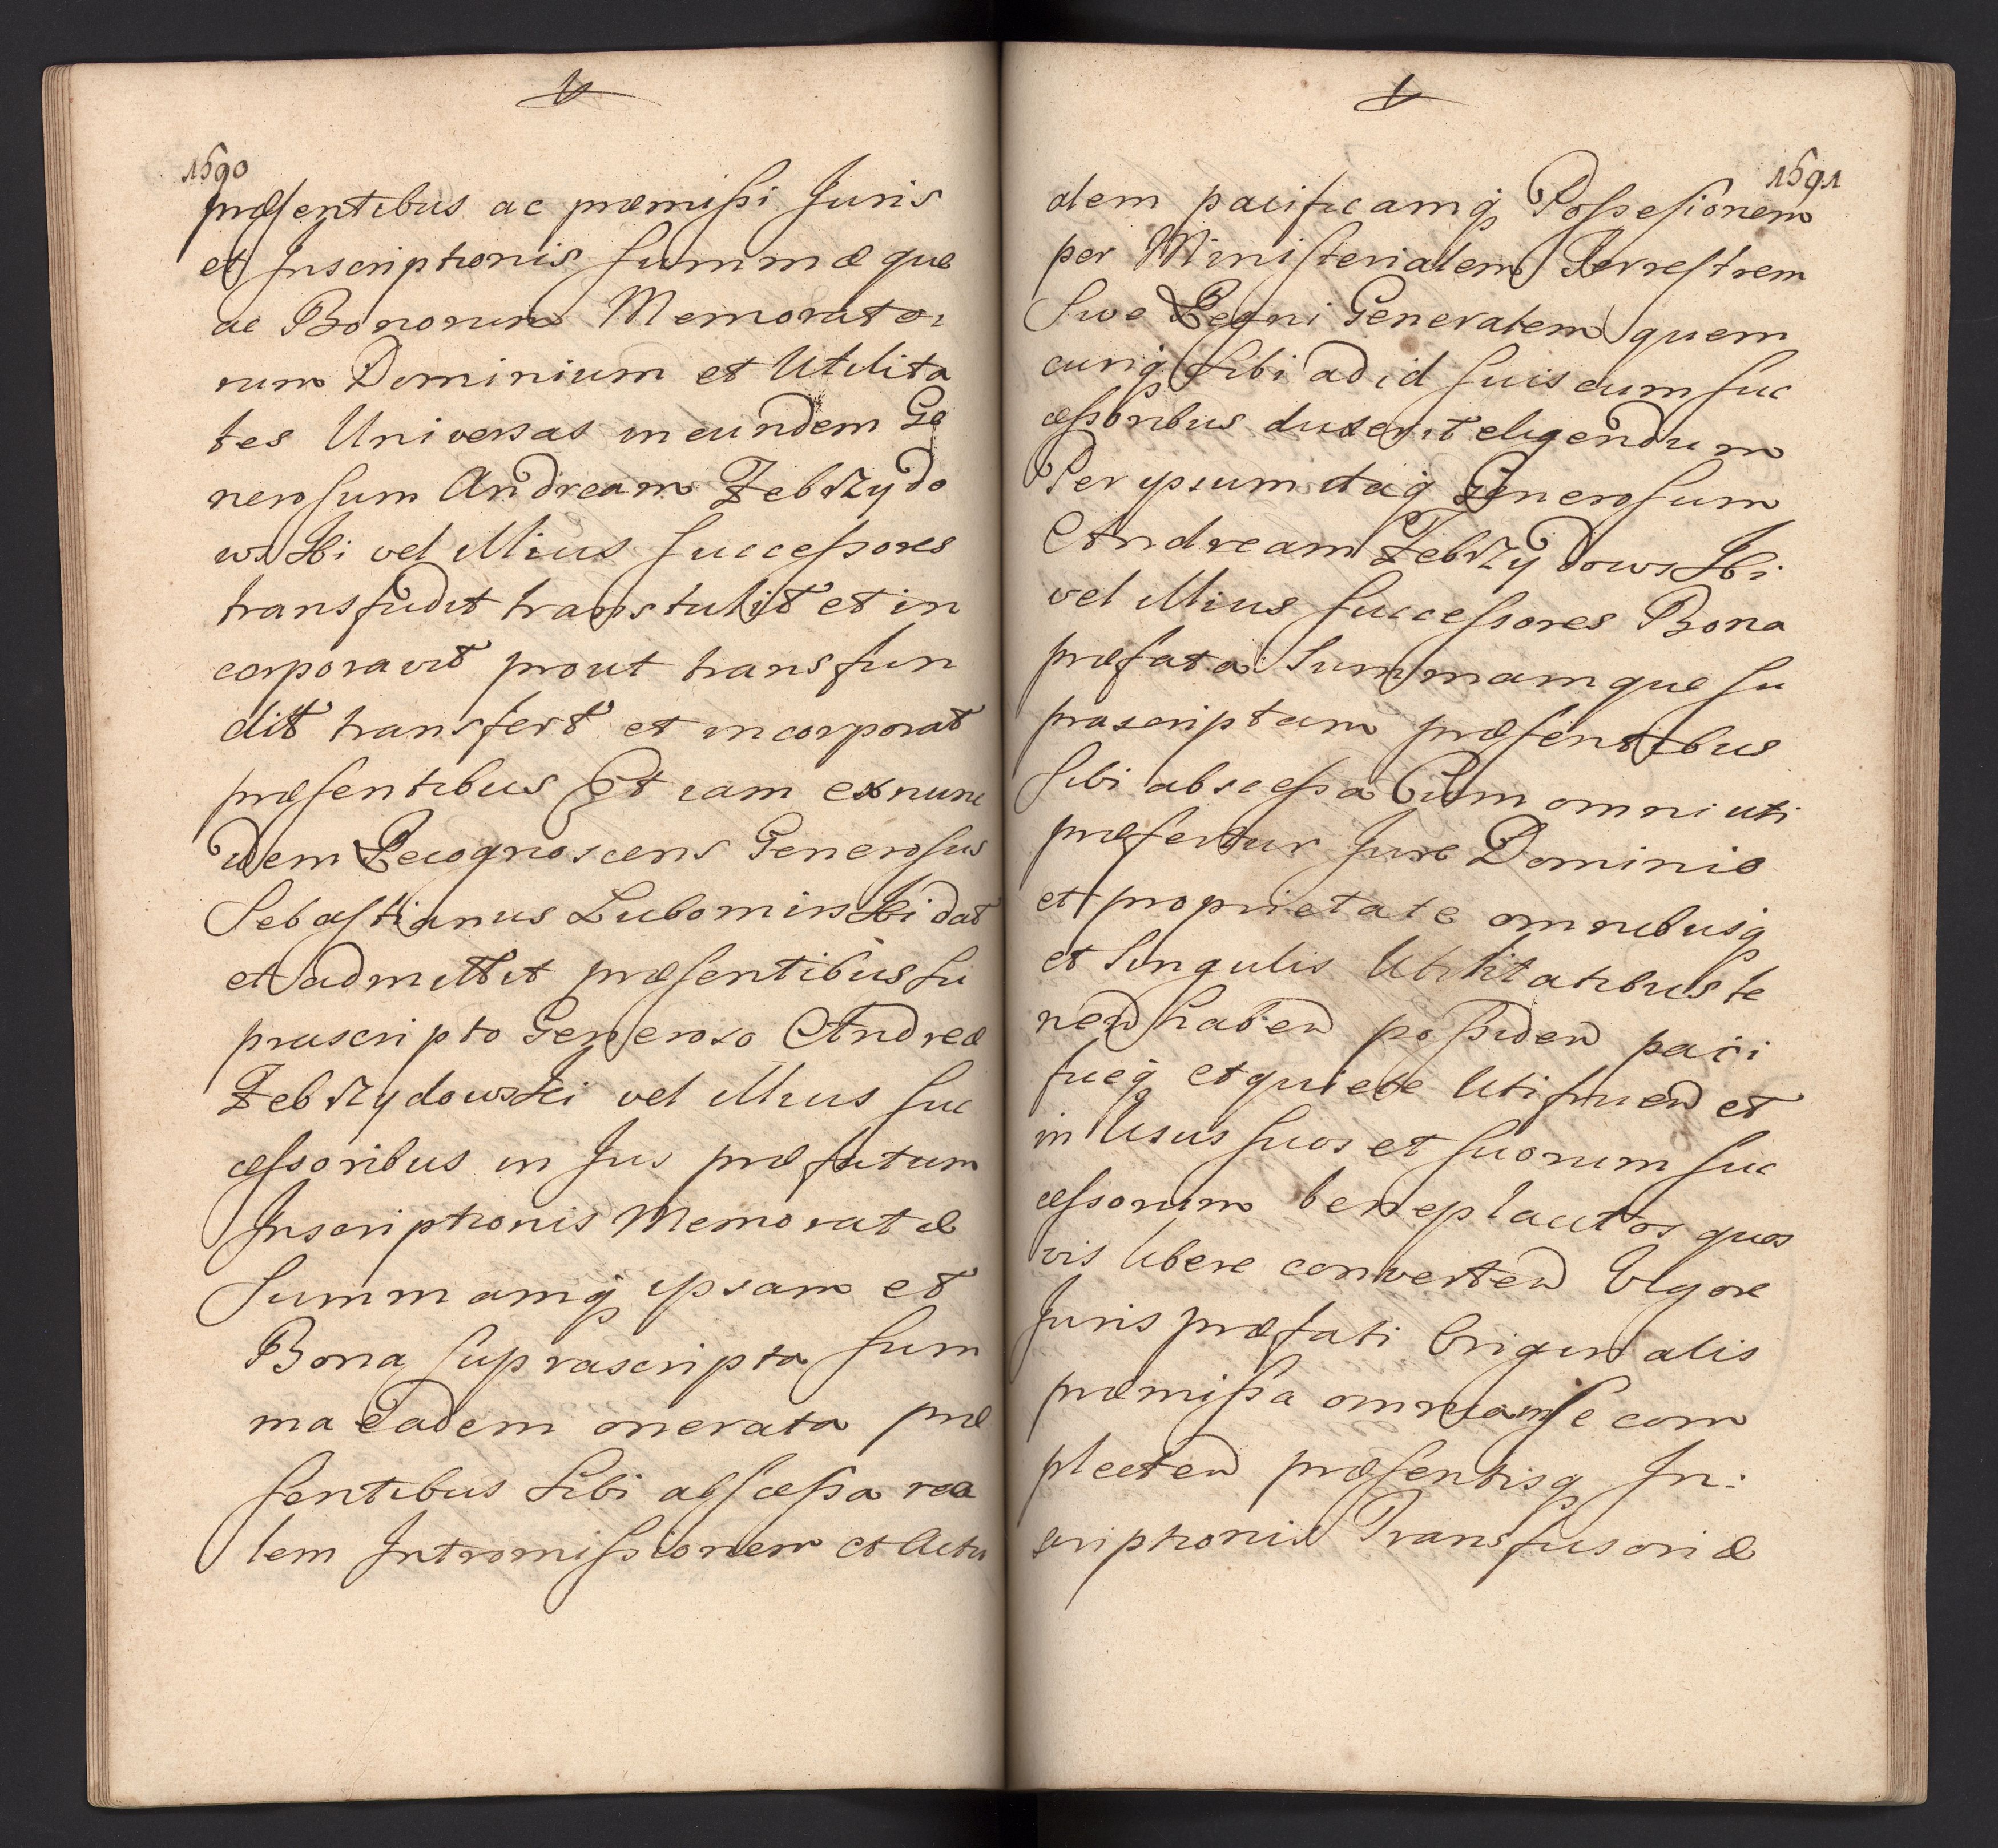 1590
præsentibus ac præmissi Juris
et Inscriptionis Summæ quæ
ac Bonorum Memorato:
rum Dominium et Utilita
tes Universas in eundem Ge
nerosum Andream Zebrzydo
wski vel illius successores
transfudit transtulit et in
corporavit prout transfun
dit transfert et incorporat
præsentibus Et iam ex nunc
idem Recognoscens Generosus
Sebastianus Lubomirski dat
et admittit præsentibus su
prascripto Generoso Andreæ
Zebrzydowski vel illius suc
cessoribus in Jus præfatum
Inscriptionis Memoratæ
Summamq ipsam et
Bona suprascripta sum
ma eadem onerata præ
sentibus sibi abscessa rea
lem Intromissionem et Actu
1591
alem pacificamq Possessionem
per Ministerialem Terrestrem
Sive Regni Generalem quem
cunq sibi ad id suis cum suc
cessoribus duxerit eligendum
Per ipsum itaq Generosum
Andream Zebrzydowski
vel illius successores Bona
præfata Summamque su
prascriptam præsentibus
sibi abscessa Cum omni uti
præfertur Jure Dominio
et proprietate omnibusq
et singulis Utilitatibus te
nend habend possidend paci
ficeq et quiete Utifruend et
in Usus suos et suorum suc
cessorum beneplacitos quos
vis libere convertend Vigore
Juris præfati Originalis
præmissa omnia in se com
plectend præsentisq In:
scriptionis Transfusoriæ